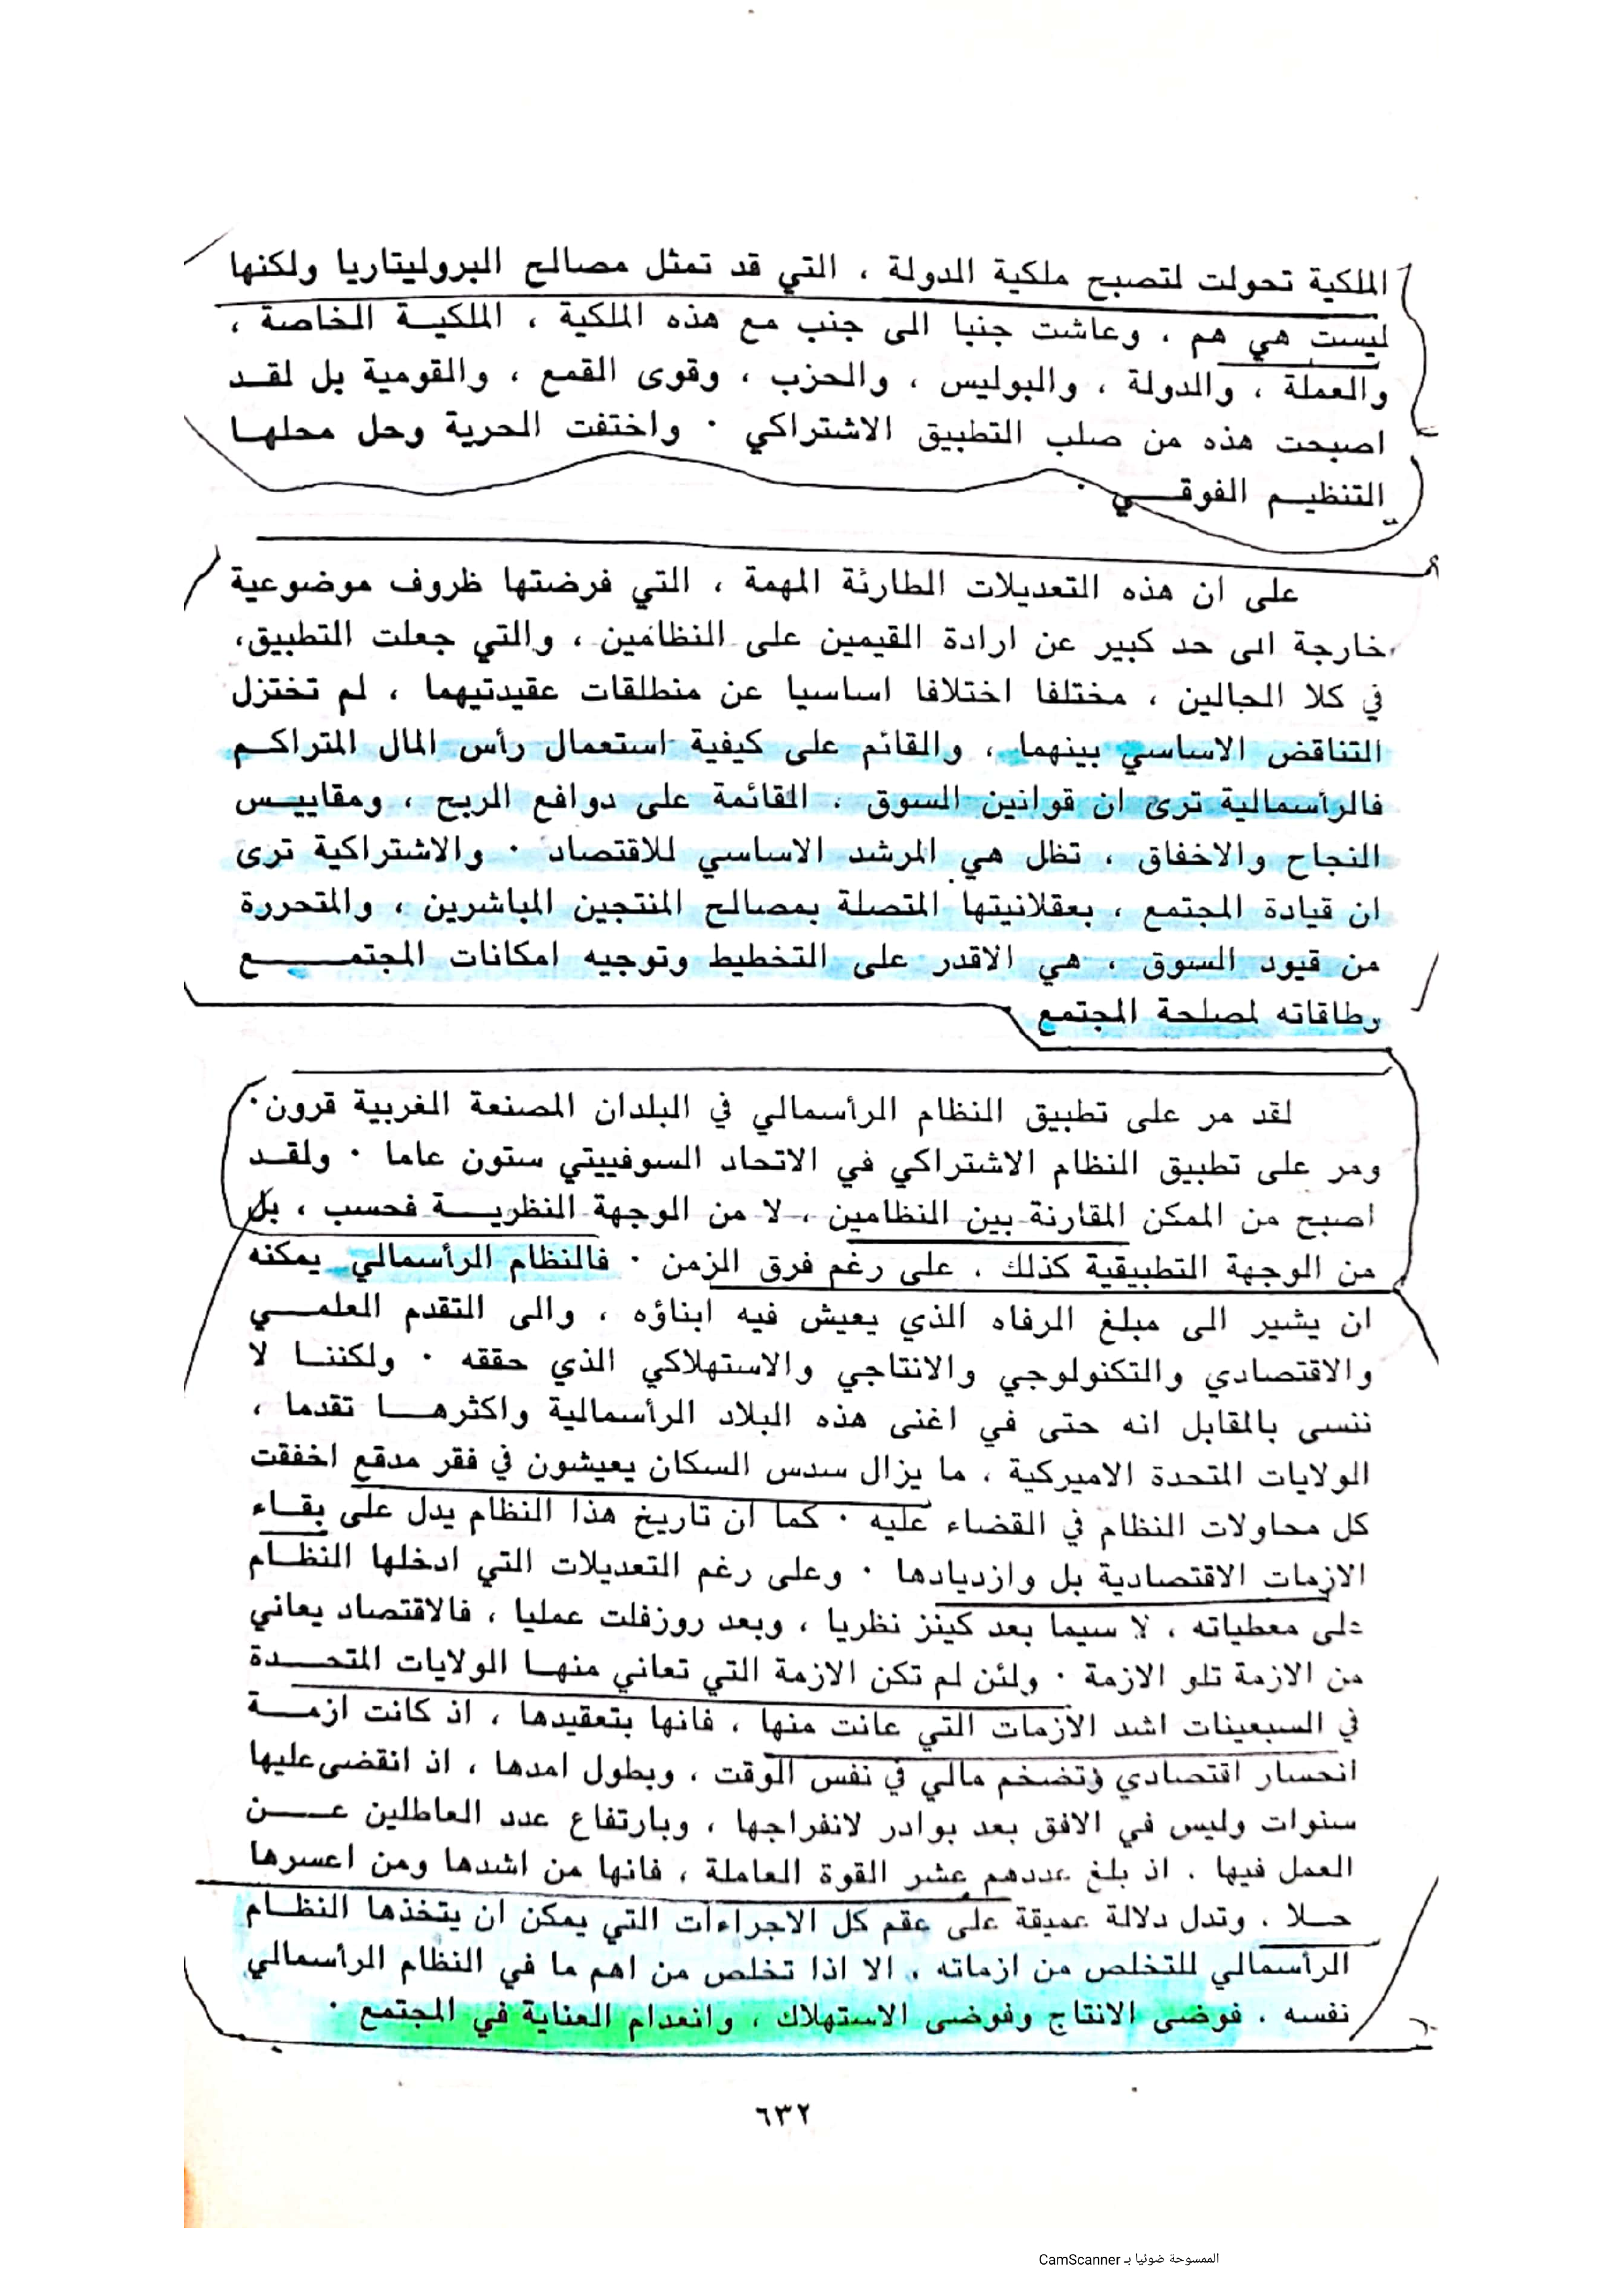 الملكية تحولت لتصبح ملكية الدولة ، التي قد تمثل مصالح البروليتاريا ولكنها
ليست هي هم ، وعاشت جنبا الى جنب مع هذه الملكية ، الملكيــة الخاصة ،
والعملة ، والدولة ، والبوليس ، والحزب ، وقوى القمع ، والقومية بل لقــد
اصبحت هذه من صلب التطبيق الاشتراكي ٠ واختفت الحرية وحل محلهــا
التنظيــم الفوقــــي ٠
على ان هذه التعديلات الطارئة المهمة ، التي فرضتها ظروف موضوعية
خارجة الى حد كبير عن ارادة القيمين على النظامين ، والتي جعلت التطبيق،
في كلا الحالين ، مختلفا اختلافا اساسيا عن منطلقات عقيدتيهما ، لم تختزل
التناقض الاساسي بينهما ، والقائم على كيفية استعمال رأس المال المتراكــم
فالرأسمالية ترى ان قوانين السوق ، القائمة على دوافع الربح ، ومقاييــس
النجاح والاخفاق ، تظل هي المرشد الاساسي للاقتصاد ٠ والاشتراكية ترى
ان قيادة المجتمع ، بعقلانيتها المتصلة بمصالح المنتجين المباشرين ، والمتحررة
من قيود السوق ، هي الاقدر على التخطيط وتوجيه امكانات المجتمـــــــع
وطاقاته لمصلحة المجتمع
لقد مر على تطبيق النظام الرأسمالي في البلدان المصنعة الغربية قرون٠
ومر على تطبيق النظام الاشتراكي في الاتحاد السوفييتي ستون عاما ٠ ولقــد
اصبح من الممكن المقارنة بين النظامين ، لا من الوجهة النظريـــة فحسب ، بل
من الوجهة التطبيقية كذلك ، على رغم فرق الزمن ٠ فالنظام الرأسمالي يمكنه
ان يشير الى مبلغ الرفاه الذي يعيش فيه ابناؤه ، والى التقدم العلمــــي
والاقتصادي والتكنولوجي والانتاجي والاستهلاكي الذي حققه ٠ ولكننــا لا
ننسى بالمقابل انه حتى في اغنى هذه البلاد الرأسمالية واكثرهـــا تقدما ،
الولايات المتحدة الاميركية ، ما يزال سدس السكان يعيشون في فقر مدقع اخفقت
كل محاولات النظام في القضاء عليه ٠ كما ان تاريخ هذا النظام يدل على بقــاء
الازمات الاقتصادية بل وازديادها ٠ وعلى رغم التعديلات التي ادخلها النظــام
على معطياته ، لا سيما بعد كينز نظريا ، وبعد روزفلت عمليا ، فالاقتصاد يعاني
من الازمة تلو الازمة ٠ ولئن لم تكن الازمة التي تعاني منهــا الولايات المتحــدة
في السبعينات اشد الازمات التي عانت منها ، فانها بتعقيدها ، اذ كانت ازمـــة
انحسار اقتصادي وتضخم مالي في نفس الوقت ، وبطول امدها ، اذ انقضى عليها
سنوات وليس في الافق بعد بوادر لانفراجها ، وبارتفاع عدد العاطلين عــــن
العمل فيها ، اذ بلغ عددهم عشر القوة العاملة ، فانها من اشدها ومن اعسرها
حــلا ، وتدل دلالة عميقة على عقم كل الاجراءات التي يمكن ان يتخذها النظــام
الرأسمالي للتخلص من ازماته ، الا اذا تخلص من اهم ما في النظام الرأسمالي
نفسه ، فوضى الانتاج وفوضى الاستهلاك ، وانعدام العناية في المجتمع ٠
٦٣٢
الممسوحة ضوئيا بـ CamScanner